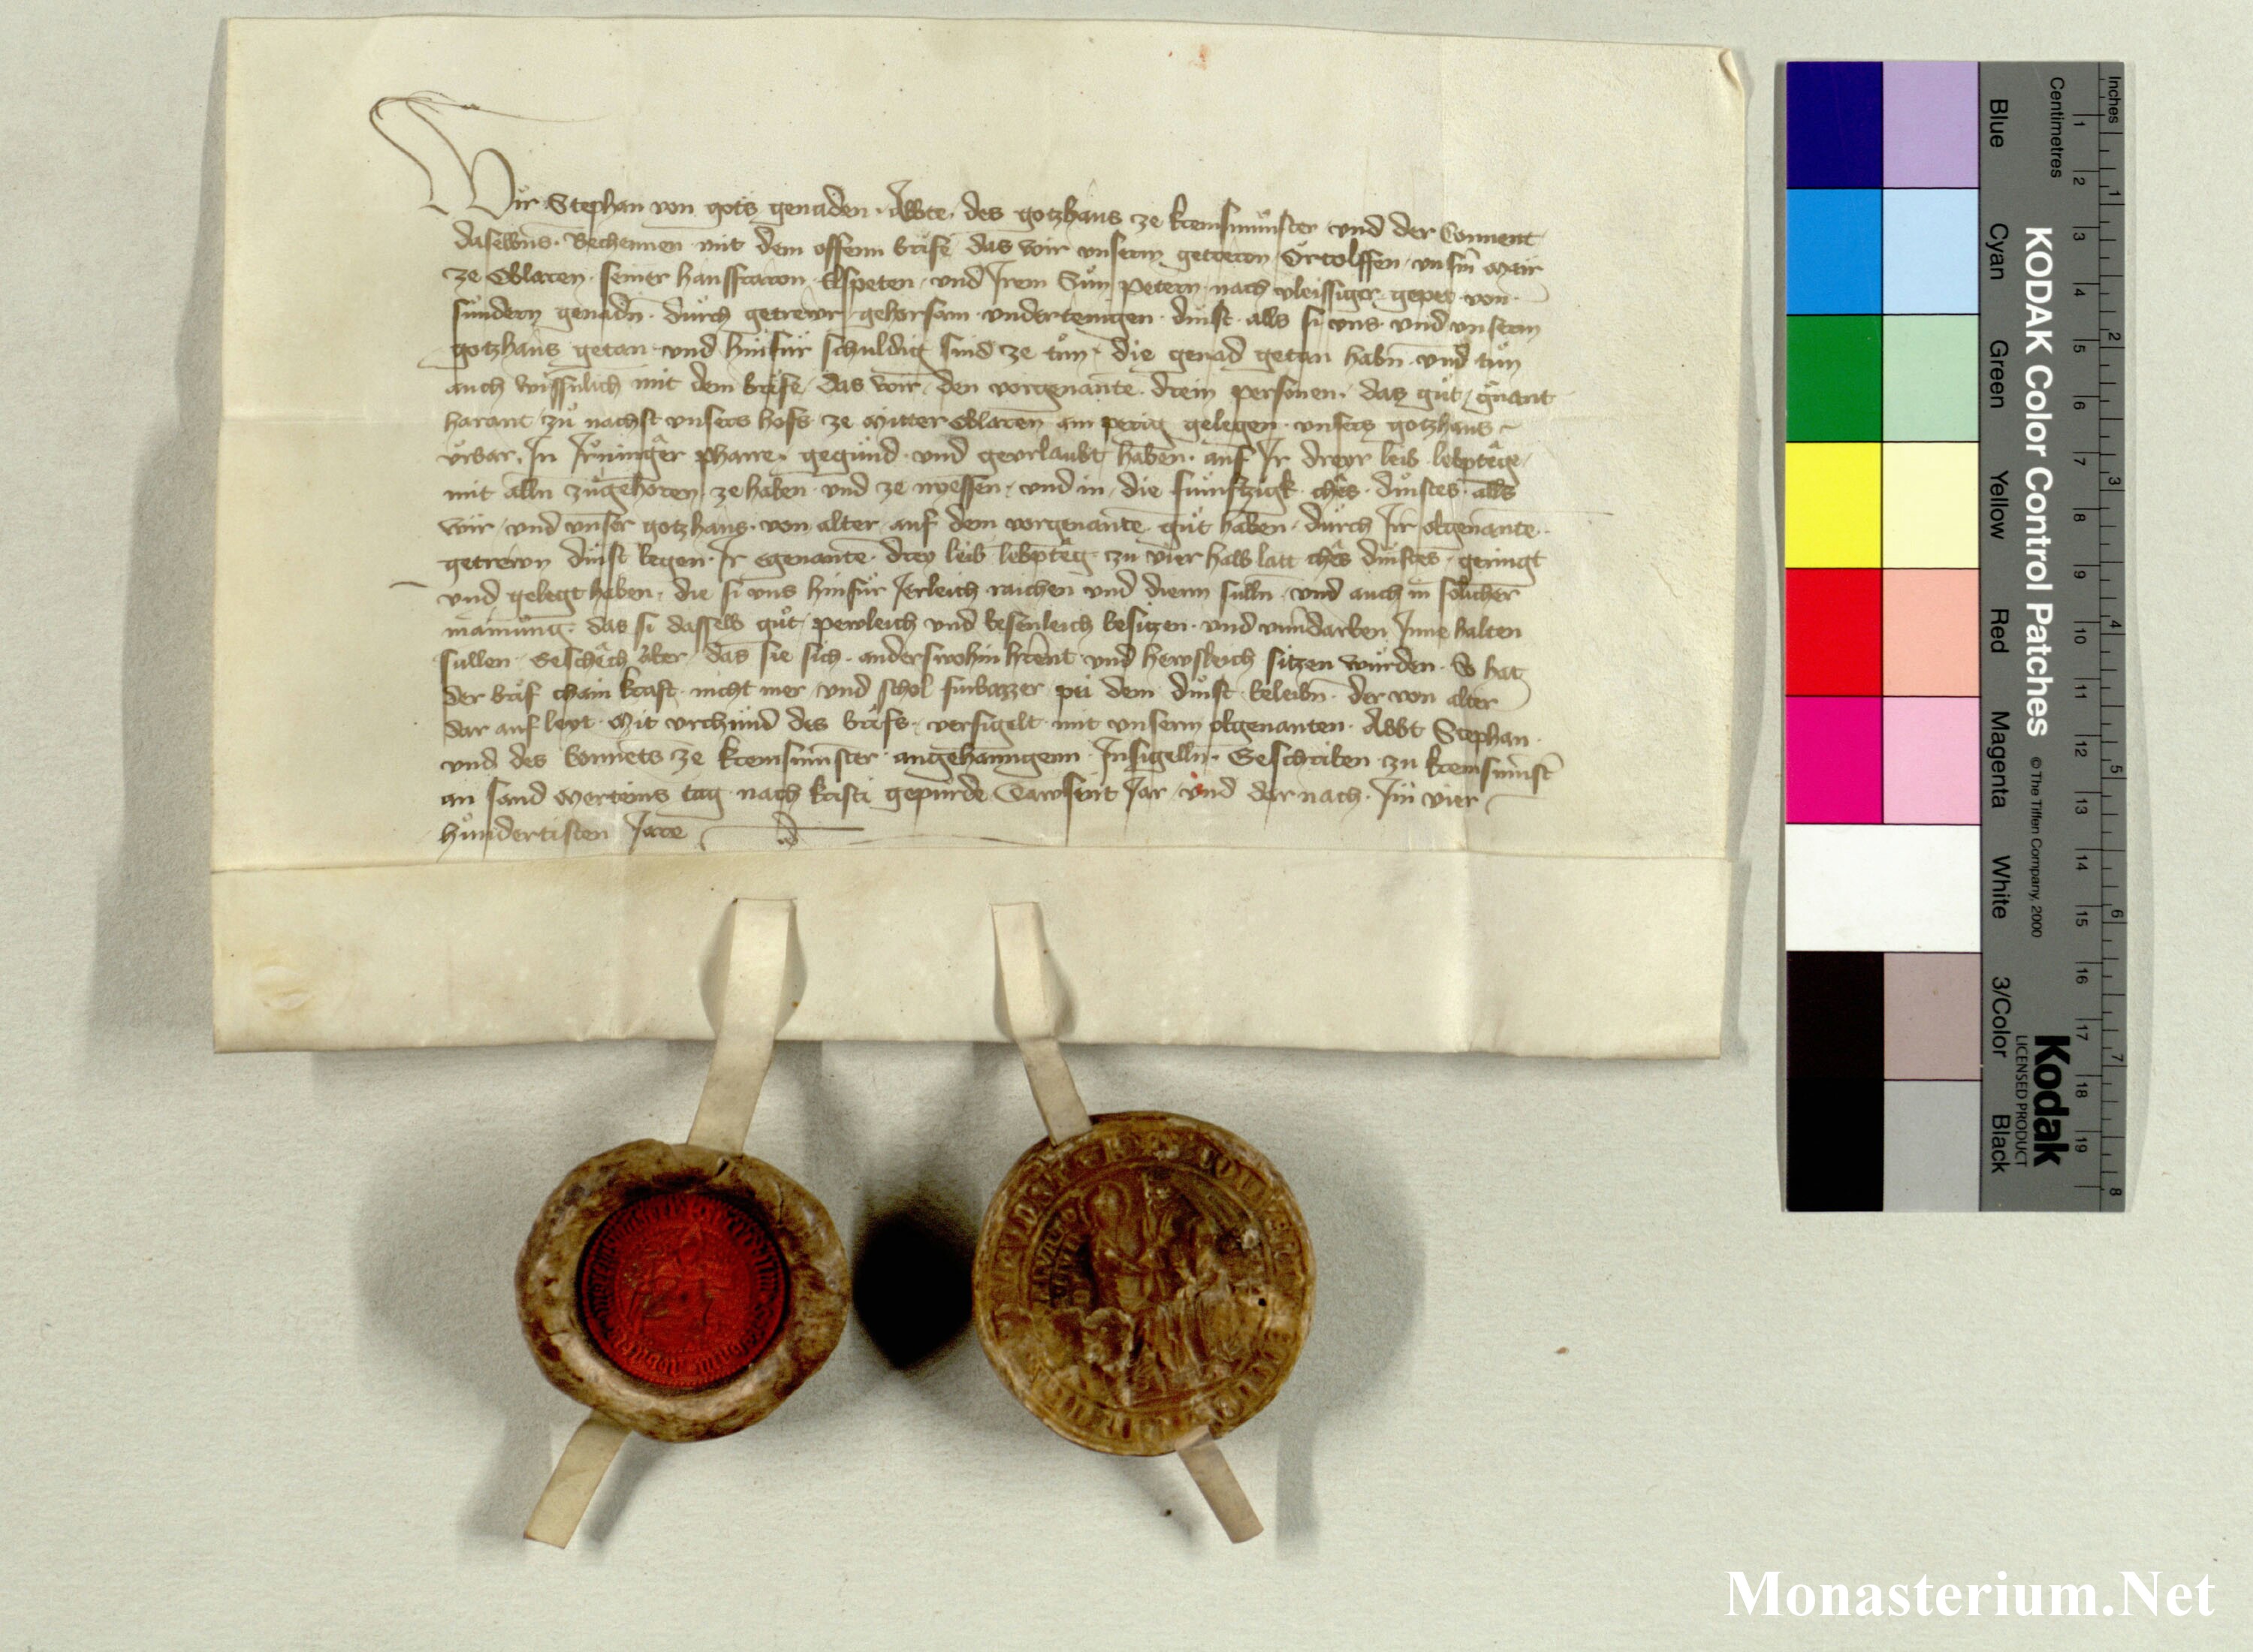 Wir Stephan von gots genaden Abbte des gotzhaus ze kremsmünster und der Convent
daselbns Bechennen mit dem offenn briefe das wir unserm getrewn Ortolffen unserm mair
ze Oblaren seiner hausfrawn Elspeten und Irem Sün Petern nach vleissiger gepet von
sundern genadn durch getrewr gehorsam undertenigen dinst alls si uns und unserm
gotzhaus getan und hinfür schuldig sind ze tün die genad getan habn und tün
auch wissnlich mit dem briefe das wir den vorgenante drein personen das güt gnant
harant zü nachst unsers hofs ze mitter Oblaren am perig gelegen unsers gotzhaus
urbar In Irninger pharre gegünd und geurlaubt haben auf Ir dreyr leib lebpteg
mit alln zügehoren ze haben und ze nyessen und in die fünftzigk ches dinstes alls
wir und unser gotzhaus von alter auf dem vorgenante güt haben durch Irr obgenante
getrewn dinst wegen Ir egenante drey leib lebpteg zu vier halb latt ches dinstes geringt
und gelegt haben die si uns hinfür Jerleich raichen und dienn sulln und auch in solicher
mainung das si dasselb güt pewleich und wesenleich besitzen und Inne halten
sullen Geschech aber das sie sich anderswohin und hewsleich sitzen würden So hat
der brief chain kraft nicht mer und schol furbazzer pei dem dinst beleibn der von alter
dar auf leyt Mit urchünd des briefs versigelt mit unserm obgenanten Abbt Stephan
und des Convents ze kremsmünster angehanngenn Insigelln Geschriben zu kremsmünster
an sand merteins tag nach kristi gepürde Tawsent Jar und dar nach Im vier
hündertisten Jare
KODAK Color Control Patches
© The Tiffen Company, 2000
Kodak
LICENSED PRODUCT
Blue Cyan Green Yellow Red Magenta White 3/Color Black
Centimetres
1 2 3 4 5 6 7 8 9 10 11 12 13 14 15 16 17 18 19
Inches
1 2 3 4 5 6 7 8
Monasterium.Net